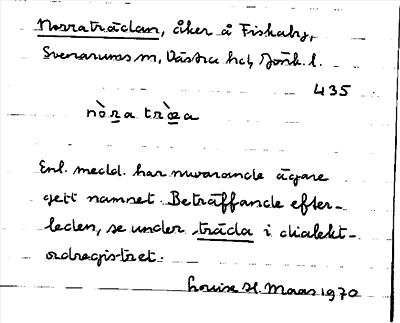 Norraträdan, åker å Fiskaby,
Svenarums sn, Västra hd, Jönk. l.
435
nòra træ̀a
Enl. medd. har nuvarande ägare
gett namnet. Beträffande efter-
leden, se under träda i dialekt-
ordregistret.
Louise H. Maas 1970